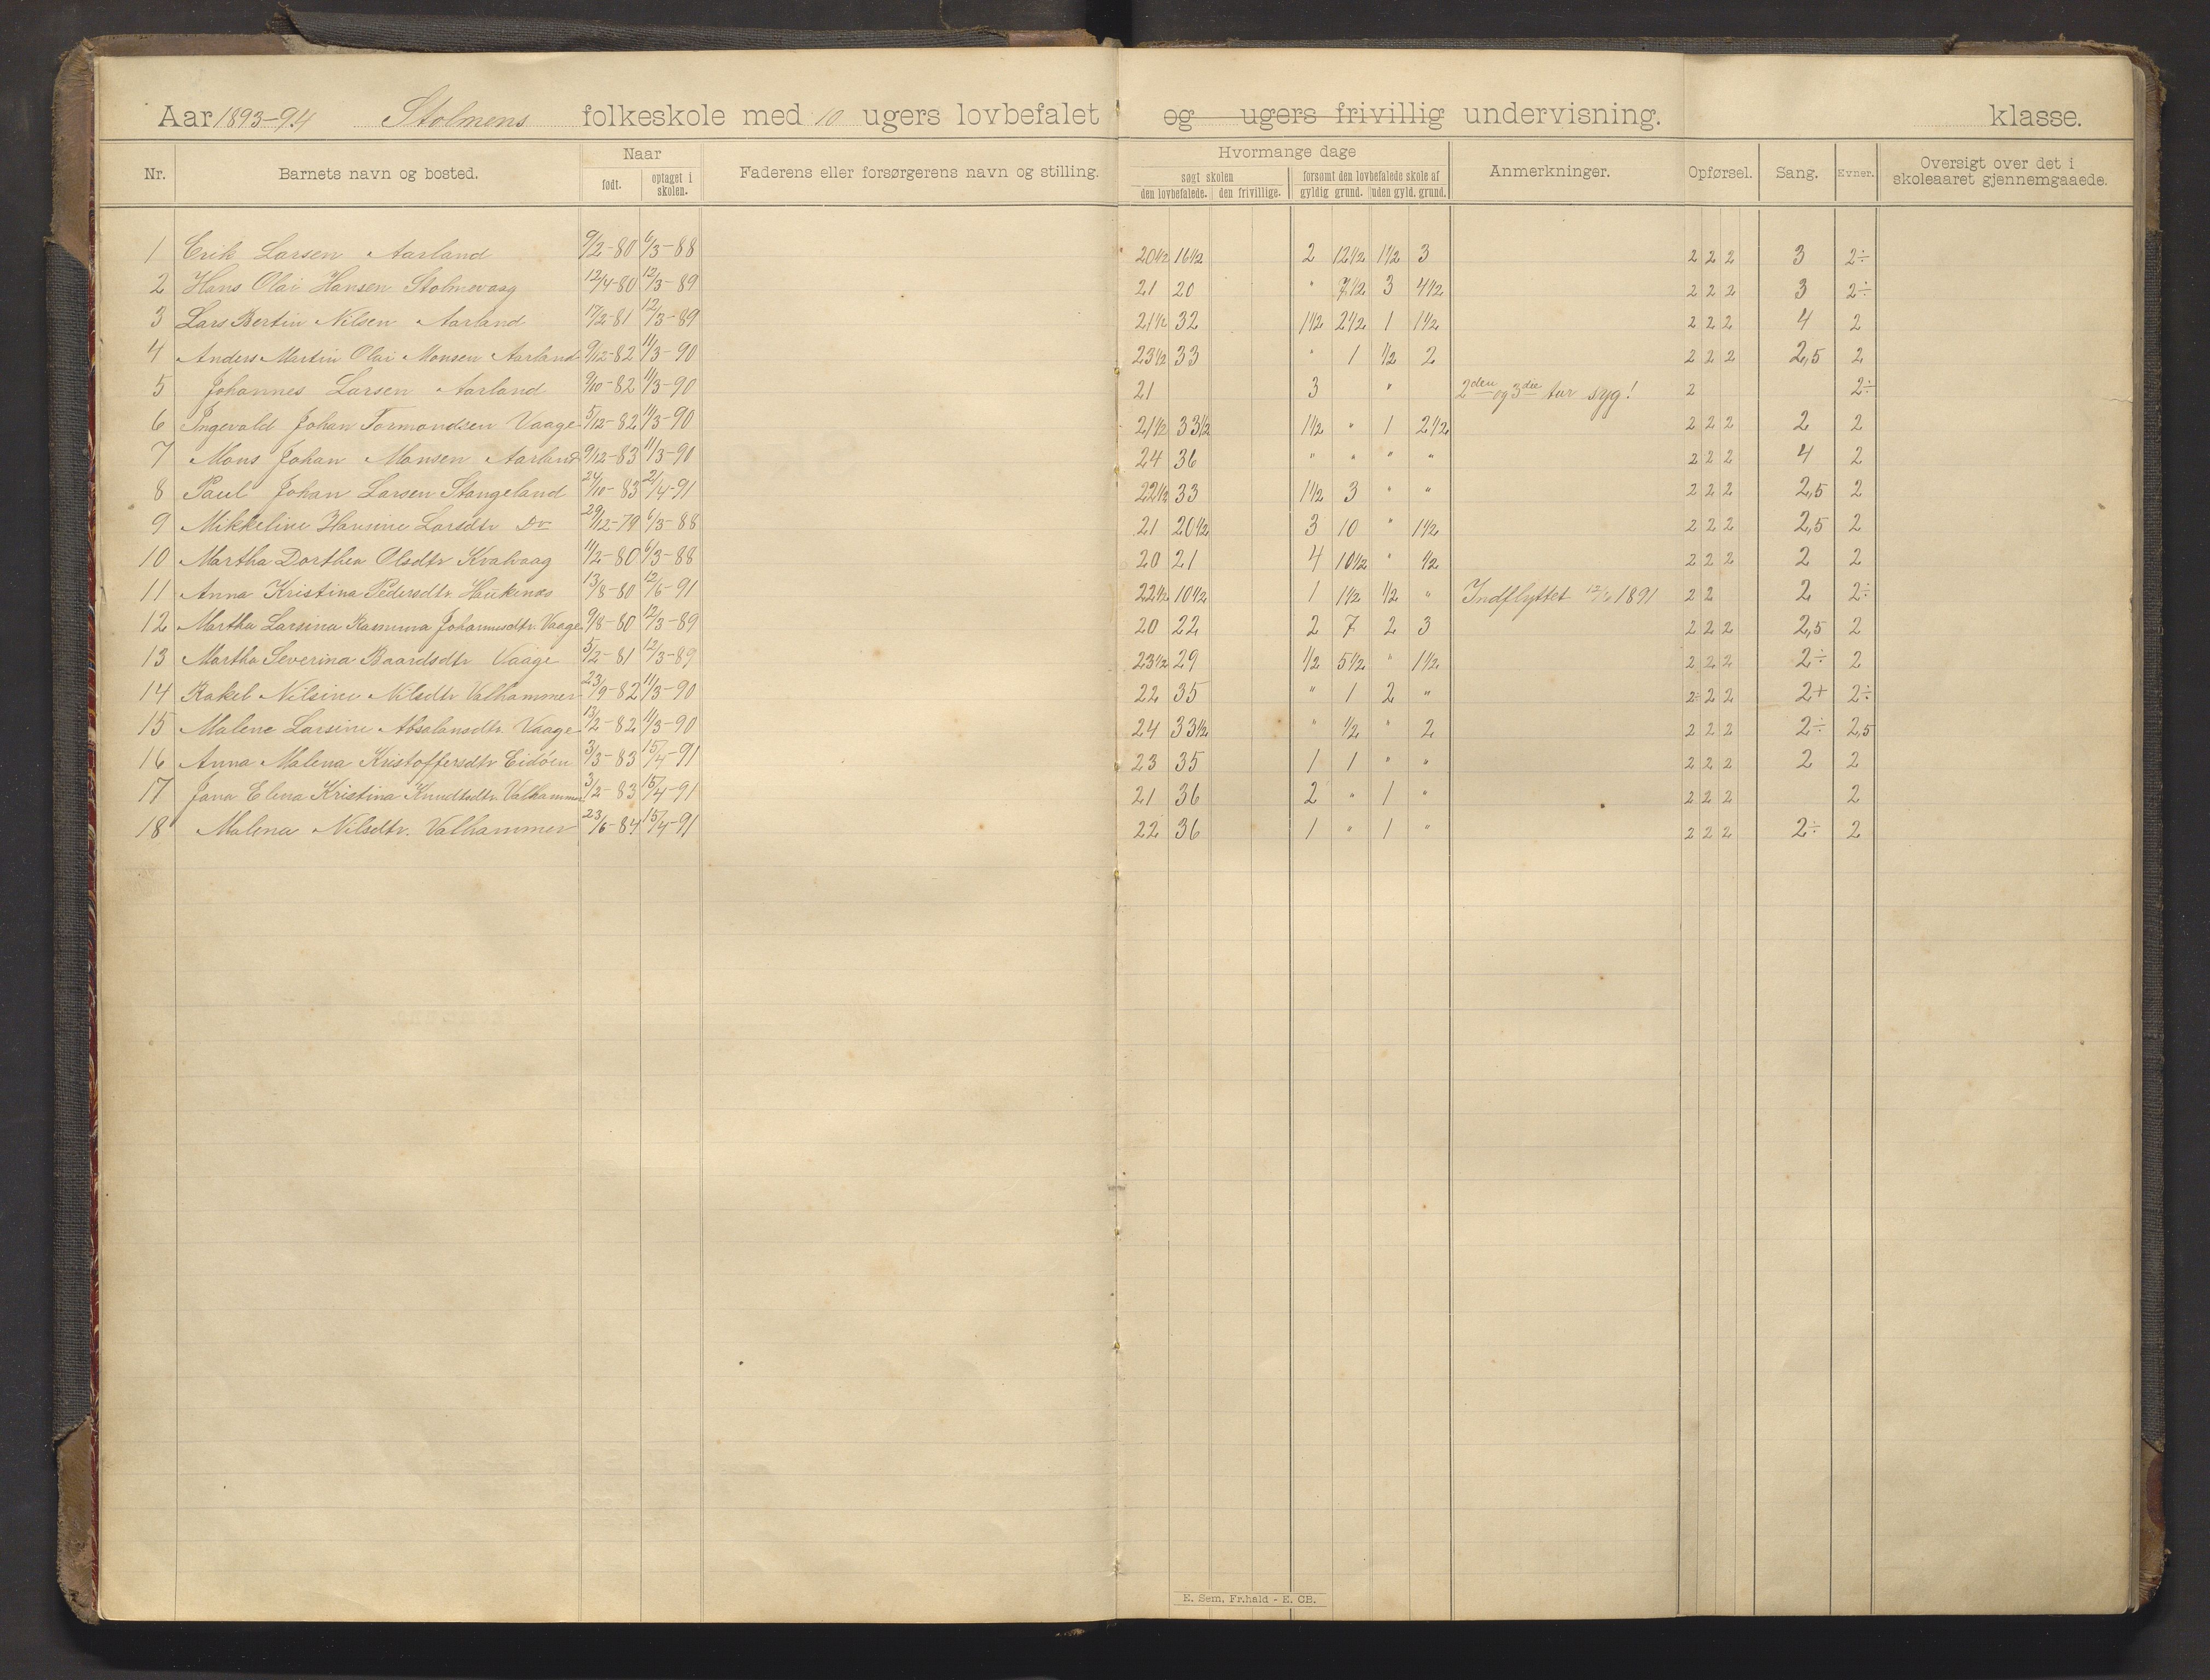 Aar 1893-94 Stolmens folkeskole med 10 ugers lovbefalet og ugers frivillig undervisning. klasse.
Nr. Barnets navn og bosted. Naar født. optaget i skolen. Faderens eller forsørgerens navn og stilling. Hvormange dage søgt skolen den lovbefalede. den frivillige. forsømt den lovbefalede skole af gyldig grund. uden gyld. grund. Anmerkninger. Opførsel. Sang. Evner. Oversigt over det i skoleaaret gjennemgaaede.
1 Erik Larsen Aarland 9/2-80 6/3-88 20½ 16½ 2 12½ 1½ 3 2 2 2 3 2÷
2 Hans Olai Hansen Stolmevaag 12/4-80 12/3-89 21 20 " 7½ 3 4½ 2 2 2 3 2÷
3 Lars Bertin Nilsen Aarland 17/2-81 12/3-89 21½ 32 1½ 2½ 1 1½ 2 2 2 4 2
4 Anders Martin Olai Monsen Aarland 9/12-82 11/3-90 23½ 33 " 1 ½ 2 2 2 2 2,5 2
5 Johannes Larsen Aarland 9/10-82 11/3-90 21 3 " 2den og 3die tur syg! 2 2÷
6 Ingevald Johan Tormondsen Vaage 5/12-82 11/3-90 21½ 33½ 1½ " 1 2½ 2 2 2 2 2
7 Mons Johan Monsen Aarland 9/12-83 11/3-90 24 36 " " " " 2 2 2 4 2
8 Paul Johan Larsen Stangeland 24/10-83 2/4-91 22½ 33 1½ 3 " " 2 2 2 2,5 2
9 Mikkeline Hansine Larsdtr Do 29/12-79 6/3-88 21 20½ 3 10 " 1½ 2 2 2 2,5 2
10 Martha Dorthea Olsdtr Kvalvaag 11/2-80 6/3-88 20 21 4 10½ " ½ 2 2 2 2 2
11 Anna Kristina Pedersdtr. Haukenæs 13/8-80 12/6-91 22½ 10½ 1 1½ ½ " Indflyttet 12/6 1891 2 2 2 2÷
12 Martha Larsina Rasmina Johannesdtr. Vaage 9/8-80 12/3-89 20 22 2 7 2 3 2 2 2 2,5 2
13 Martha Severina Baardsdtr Vaage 5/2-81 12/3-89 23½ 29 ½ 5½ " 1½ 2 2 2 2÷ 2
14 Rakel Nilsine Nilsdtr Valhammer 23/9-82 11/3-90 22 35 " 1 2 " 2÷ 2 2 2+ 2÷
15 Malene Larsine Absalonsdtr. Vaage 13/2-82 11/3-90 24 33½ " ½ " 2 2 2 2 2÷ 2,5
16 Anna Malena Kristoffersdtr Eidöen 3/3-83 15/4-91 23 35 1 1 " " 2 2 2 2 2
17 Jana Elena Kristina Knudtsdtr. Valhammer 3/2-83 15/4-91 21 36 2 " 1 " 2 2 2 2
18 Malena Nilsdtr. Valhammer 23/6-84 15/4-91 22 36 1 " 1 " 2 2 2 2÷ 2
E. Sem, Fr.hald - E. CB.